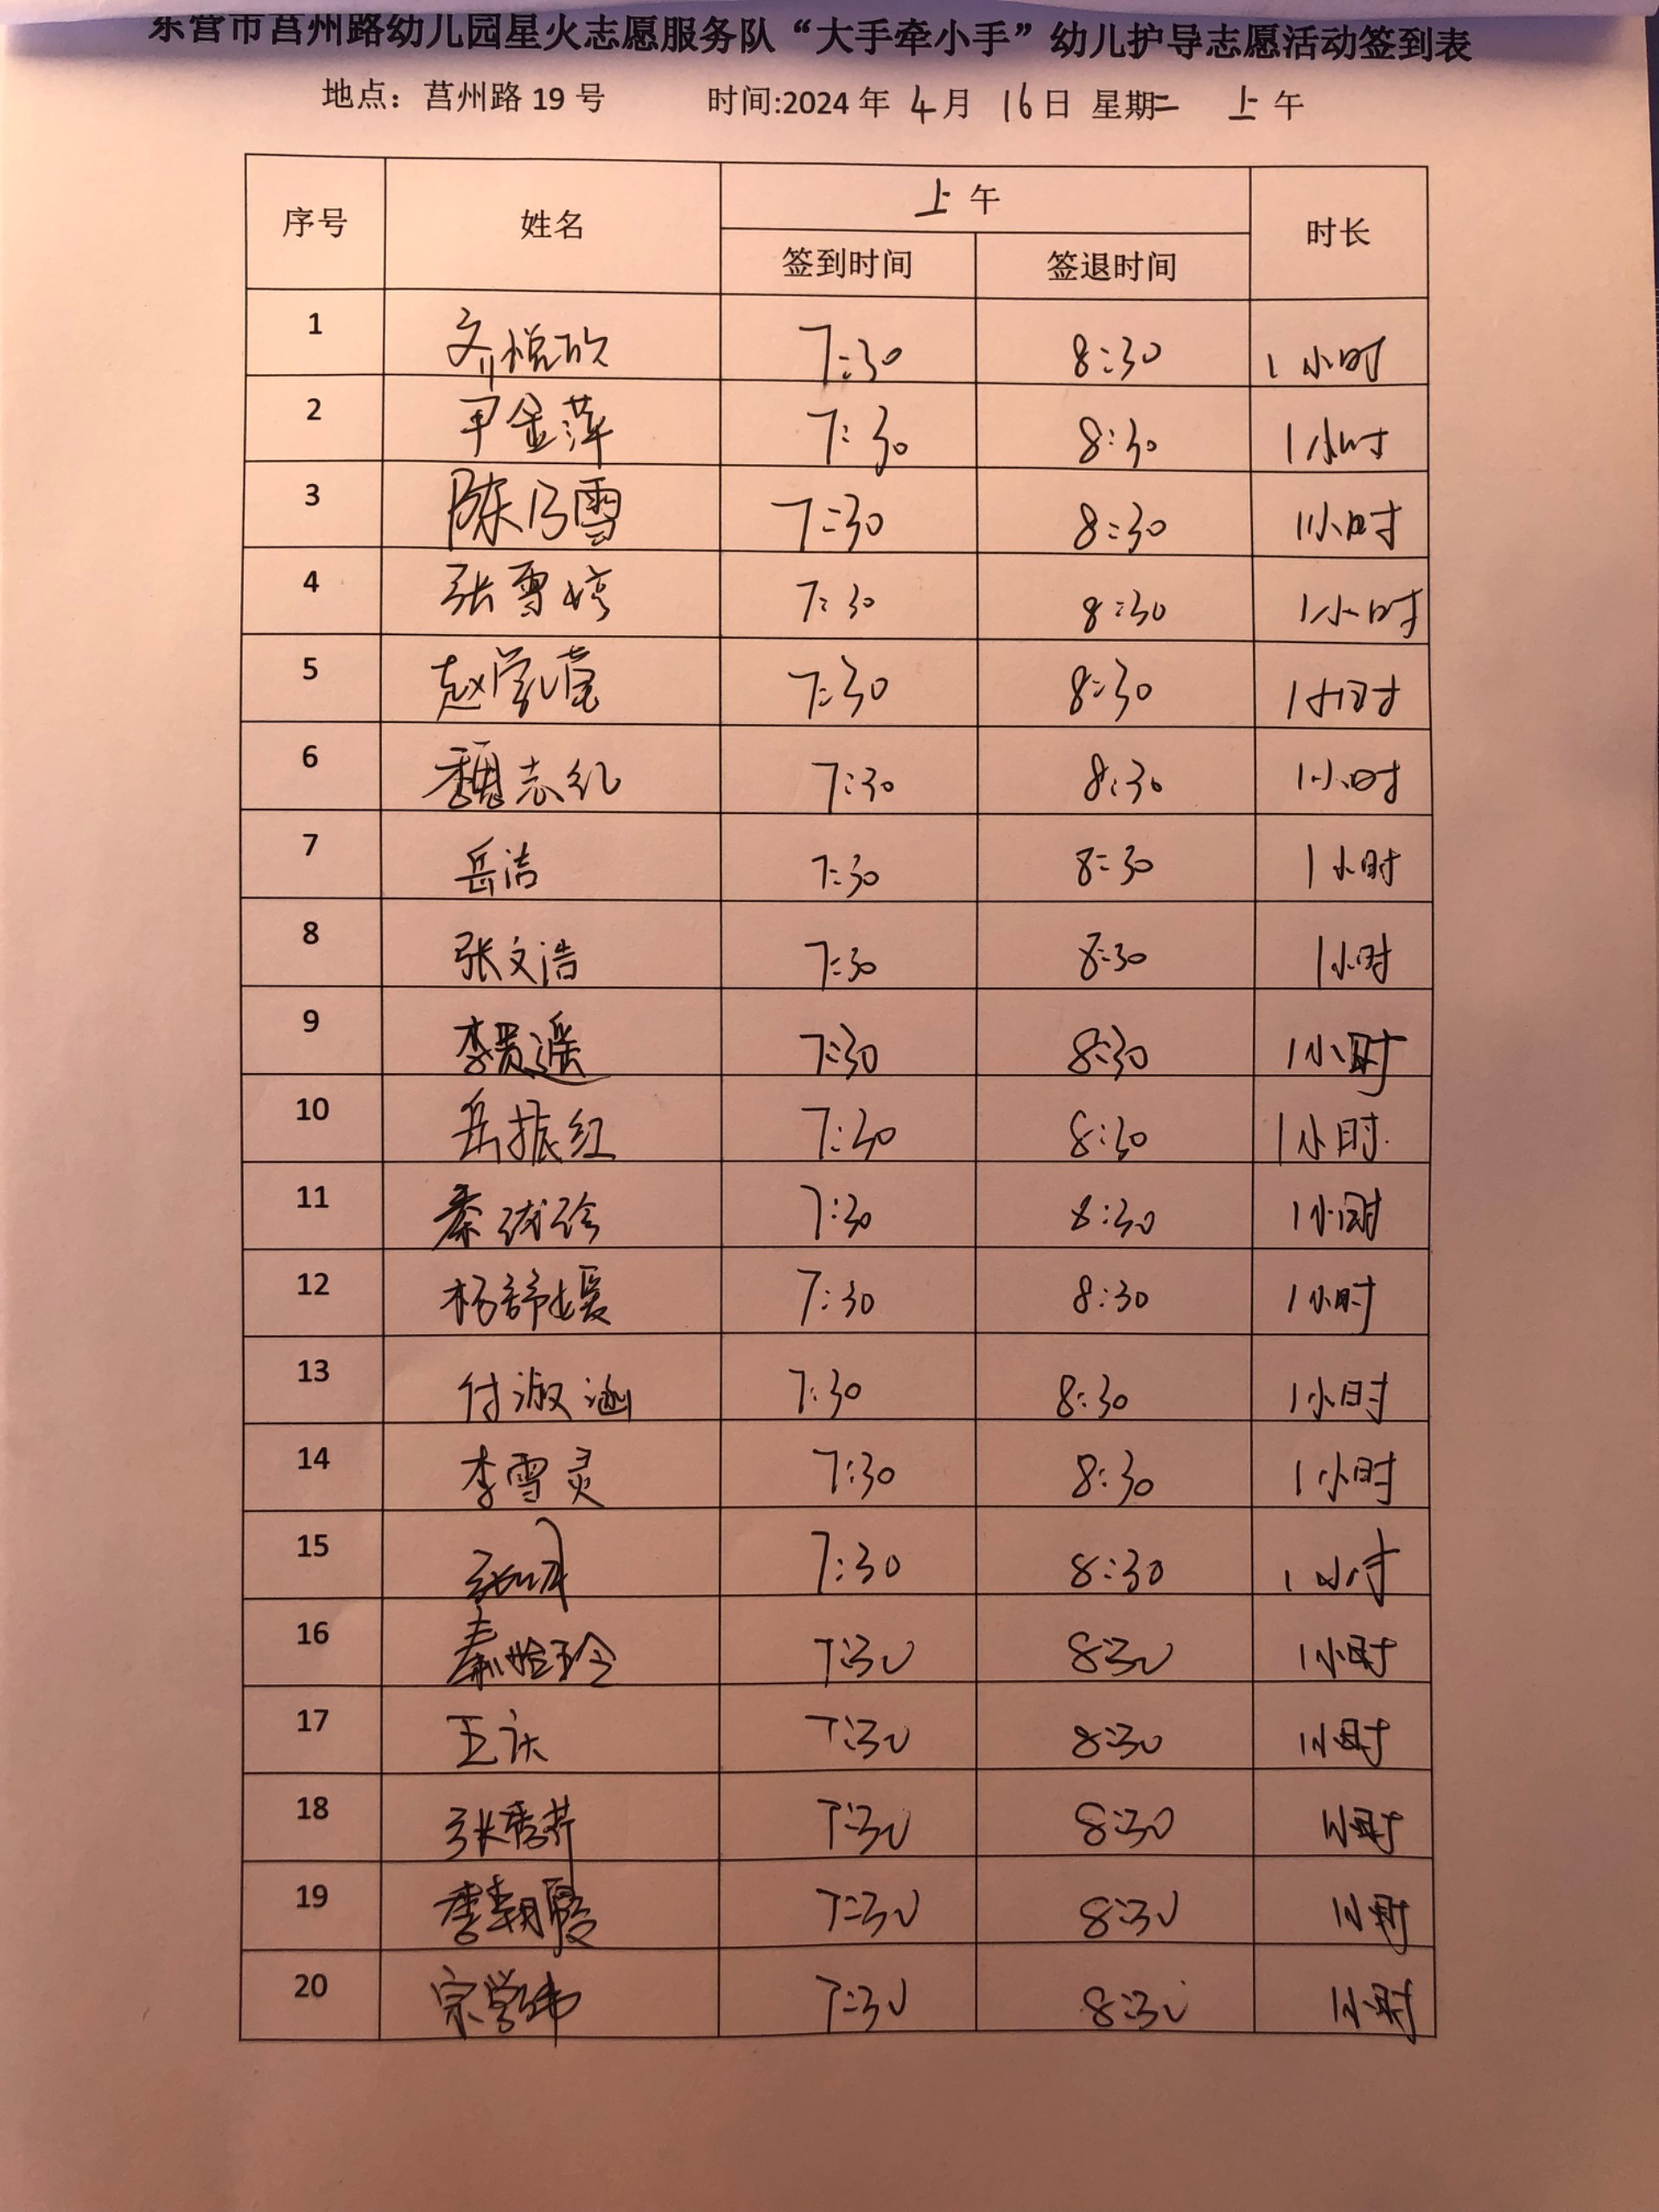 东营市莒州路幼儿园星火志愿服务队“大手牵小手”幼儿护导志愿活动签到表
地点：莒州路 19 号 时间:2024 年 4 月 16 日 星期二 上 午
序号 姓名 上 午 时长
签到时间 签退时间
1 齐悦欣 7:30 8:30 1小时
2 尹金萍 7:30 8:30 1小时
3 陈乃雪 7:30 8:30 1小时
4 张雪婷 7:30 8:30 1小时
5 赵学莹 7:30 8:30 1小时
6 魏志红 7:30 8:30 1小时
7 岳洁 7:30 8:30 1小时
8 张文浩 7:30 8:30 1小时
9 李贯遥 7:30 8:30 1小时
10 岳振红 7:30 8:30 1小时
11 秦 7:30 8:30 1小时
12 杨舒媛 7:30 8:30 1小时
13 付淑涵 7:30 8:30 1小时
14 李雪灵 7:30 8:30 1小时
15 7:30 8:30 1小时
16 秦怡玲 7:30 8:30 1小时
17 王庆 7:30 8:30 1小时
18 张秀芹 7:30 8:30 1小时
19 李朝霞 7:30 8:30 1小时
20 宗学伟 7:30 8:30 1小时